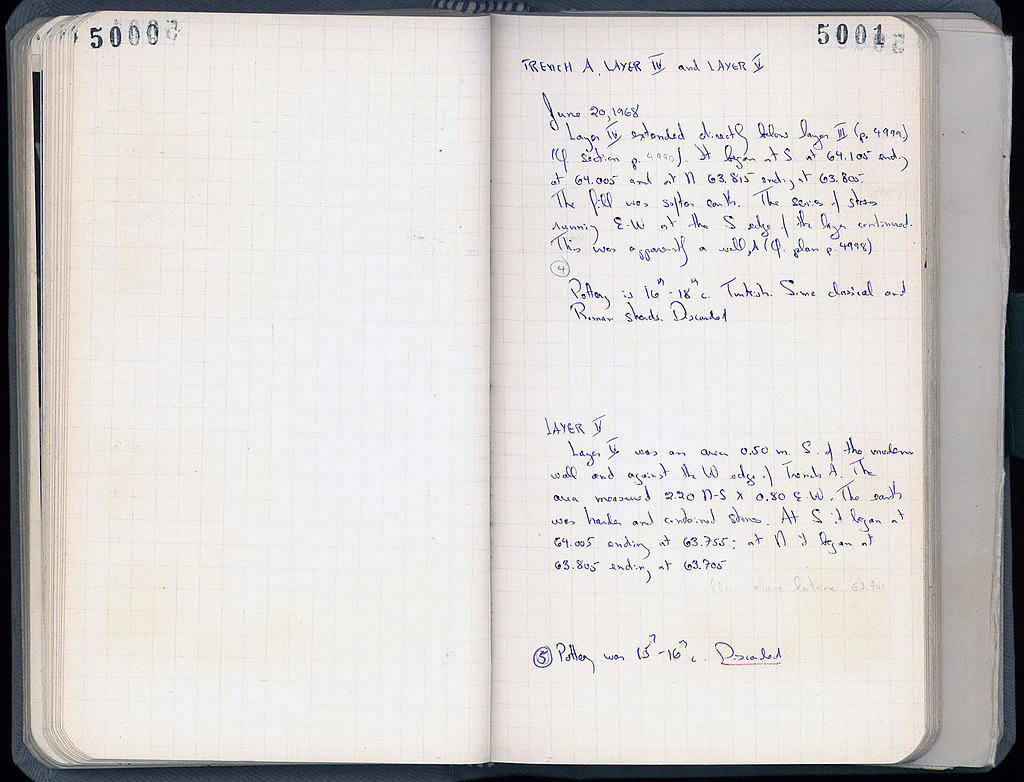 5000
5001
TRENCH A. LAYER IV and LAYER V
June 20, 1968
Layer IV extended directly below layer III (p. 4999)
(Cf. section p. 4990). It began at S at 64.105 ending
at 64.005 and at N 63.815 ending at 63.805
The fill was softer earth. The series of stones
running E-W at the S edge of the layer continued.
This was apparently a wall, (Cf. plan p. 4998)
4
Pottery is 16th-18th c. Turkish. Some classical and
Roman sherds. Discarded
LAYER V
Layer V was an area 0.50 m. S. of the modern
wall and against the W edge of Trench A. The
area measured 2.20 N-S x 0.80 E-W. The earth
was harder and contained stones. At S it began at
64.005 ending at 63.755; at N it began at
63.805 ending at 63.705
63.700
5 Pottery was 15th-16th c. Discarded